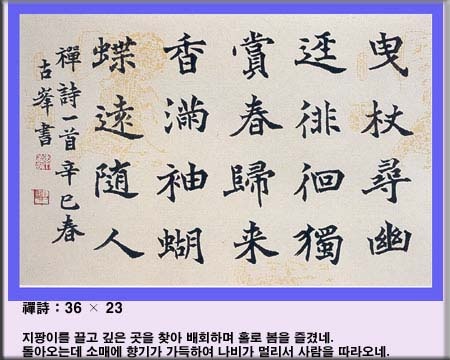 曳杖尋幽
逕徘徊獨
賞春歸来
香滿袖蝴
蝶遠随人
禪詩一首辛巳春
古峯書
禪詩 : 36 × 23
지팡이를 끌고 깊은 곳을 찾아 배회하며 홀로 봄을 즐겼네.
돌아오는데 소매에 향기가 가득하여 나비가 멀리서 사람을 따라오네.